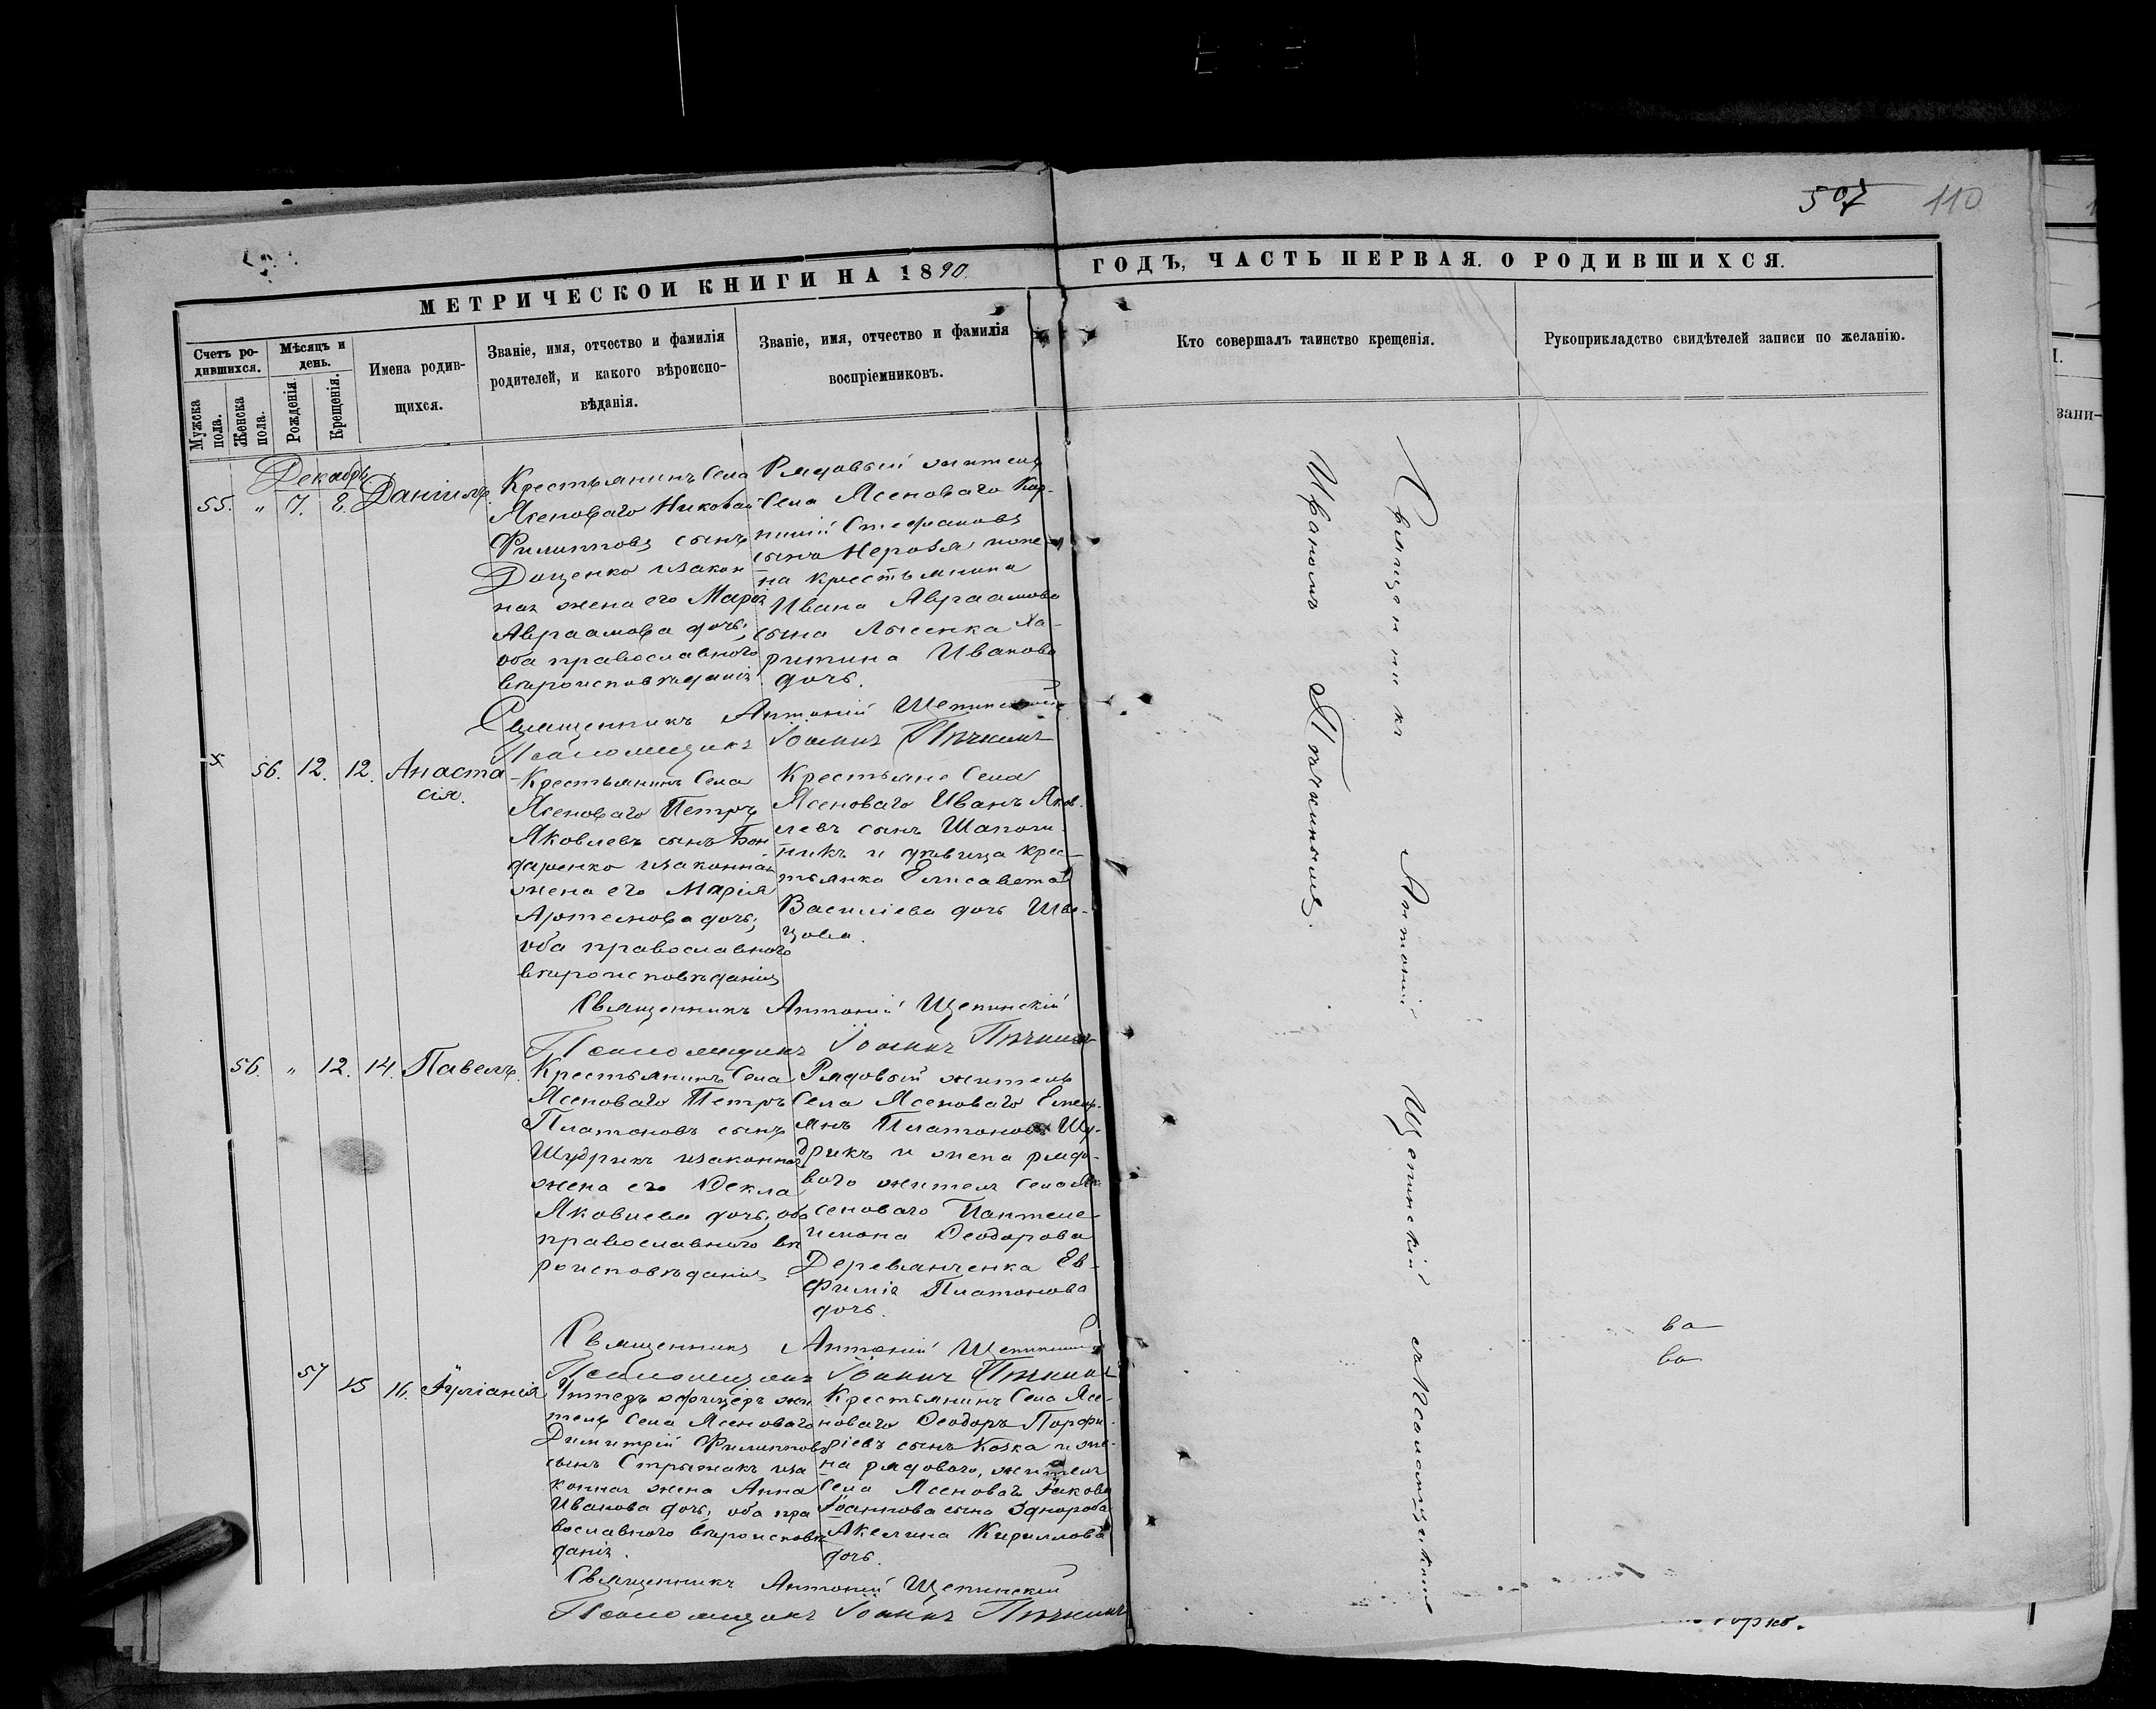 507 110
МЕТРИЧЕСКОЙ КНИГИ НА 1890.
ГОДЪ, ЧАСТЬ ПЕРВАЯ. О РОДИВШИХСЯ.
Счетъ ро-
дившихся.
Мужска
пола.
Женска
пола.
Мѣсяцъ и
день.
Рожденія.
Крещенія.
Имена родив-
щихся.
Званіе, имя, отчество и фамилія
родителей, и какого вѣроиспо-
вѣданія.
Званіе, имя, отчество и фамилія
воспріемниковъ.
Кто совершалъ таинство крещенія.
Рукоприкладство свидѣтелей записи по желанію.
Декабрь
55. " 7. 8. Даніилъ.
Крестьянинъ Села
Ясеноваго Николай
Филипповъ сынъ
Доценко и закон
ная жена его Марія
Авраамова дочь;
оба православнаго
вѣроисповѣданія.
Рядовый житель
Села Ясеноваго Кор-
нилій Стефановъ
сынъ Нероба и же-
на крестьянина
Ивана Авраамова
сына Лысенка Ха-
ритина Иванова
дочь.
Священникъ Антоній Щепинскій
Псаломщикъ Іоаннъ Пѣчкинъ
56. 12. 12. Анаста
сія.
Крестьянинъ Села
Ясеноваго Петръ
Яковлевъ сынъ Бон
даренко и законная
жена его Марія
Артемова дочь;
оба православнаго
вѣроисповѣданія
Крестьяне Села
Ясеноваго Иванъ Яков-
левъ сынъ
и дѣвица крес-
тьянка Елисавета
Василіева дочь Шве-
цова.
Священникъ Антоній Щепинскій
Псаломщикъ Іоаннъ Пѣчкинъ
56. " 12. 14. Павелъ.
Крестьянинъ Села
Ясеноваго Петръ
Платоновъ сынъ
Шудрикъ и законная
жена его Ѳекла
Яковлева дочь; оба
православнаго вѣ
роисповѣданія.
Рядовый житель
Села Ясеноваго Емель-
янъ Платоновъ Шу-
дрикъ и жена рядо-
ваго жителя Села Я-
сеноваго Пантеле-
имона Ѳеодорова
Деревянченка Ев-
фимія Платонова
дочь.
Священникъ Антоній Щепинскій
Псаломщикъ Іоаннъ Пѣчкинъ
57 15 16. Іуліанія
Унтеръ офицеръ жи
тель Села Ясеноваго
Димитрій Филипповъ
сынъ Стрижакъ и за
конная жена Анна
Иванова дочь; оба пра
вославнаго вѣроисповѣ
данія.
Крестьянинъ Села Ясе-
новаго Ѳеодоръ Порфи-
ріевъ сынъ Козка и же-
на рядоваго, жителя
Села Ясеноваго Іакова
Іоаннова сына Однороба
Акелина Кириллова
дочь.
Священникъ Антоній Щепинскій
Псаломщикъ Іоаннъ Пѣчкинъ
Священникъ Антоній Щепинскій съ Псаломщикомъ
Иваномъ Пѣчкинымъ.
ва
ва
зани-